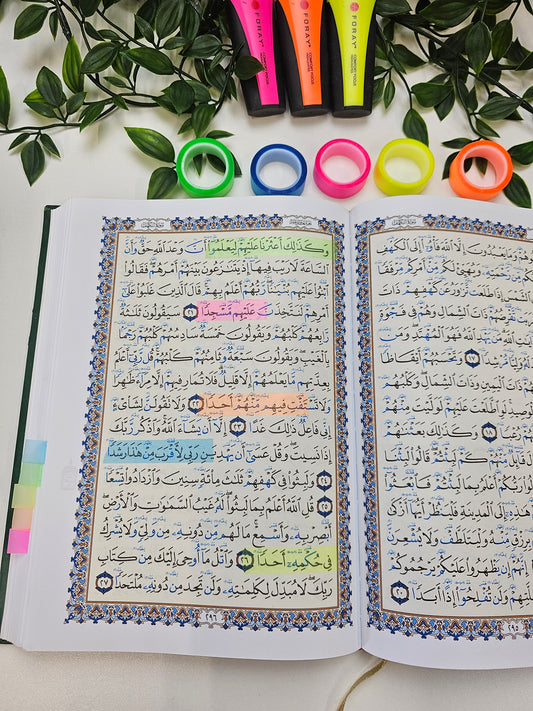 FORAY
FORAY
FORAY
وَمَا يَعْبُدُونَ إِلَّا ٱللَّهَ فَأْوُۥٓا۟ إِلَى ٱلْكَهْفِ
مِّن رَّحْمَتِهِۦ وَيُهَيِّئْ لَكُم مِّنْ أَمْرِكُم مِّرْفَقًا
إِذَا طَلَعَت تَّزَٰوَرُ عَن كَهْفِهِمْ ذَاتَ
تَّقْرِضُهُمْ ذَاتَ ٱلشِّمَالِ وَهُمْ فِى فَجْوَةٍ
ٱللَّهِ مَن يَهْدِ ٱللَّهُ فَهُوَ ٱلْمُهْتَدِ وَمَن
وَلِيًّا مُّرْشِدًا ١٧ وَتَحْسَبُهُمْ أَيْقَاظًا
ذَاتَ ٱلْيَمِينِ وَذَاتَ ٱلشِّمَالِ وَكَلْبُهُم
لَوِ ٱطَّلَعْتَ عَلَيْهِمْ لَوَلَّيْتَ مِنْهُمْ
رُعْبًا ١٨ وَكَذَٰلِكَ بَعَثْنَٰهُمْ
قَآئِلٌ مِّنْهُمْ كَمْ لَبِثْتُمْ قَالُوا۟ لَبِثْنَا
رَبُّكُمْ أَعْلَمُ بِمَا لَبِثْتُمْ فَٱبْعَثُوٓا۟
هَٰذِهِۦٓ إِلَى ٱلْمَدِينَةِ فَلْيَنظُرْ أَيُّهَآ أَزْكَىٰ
بِرِزْقٍ مِّنْهُ وَلْيَتَلَطَّفْ وَلَا يُشْعِرَنَّ
إِنَّهُمْ إِن يَظْهَرُوا۟ عَلَيْكُمْ يَرْجُمُوكُمْ
وَلَن تُفْلِحُوٓا۟ إِذًا أَبَدًا ٢٠
٢٩٥
وَكَذَٰلِكَ أَعْثَرْنَا عَلَيْهِمْ لِيَعْلَمُوٓا۟ أَنَّ وَعْدَ ٱللَّهِ حَقٌّ وَأَنَّ
ٱلسَّاعَةَ لَا رَيْبَ فِيهَآ إِذْ يَتَنَٰزَعُونَ بَيْنَهُمْ أَمْرَهُمْ فَقَالُوا۟
ٱبْنُوا۟ عَلَيْهِم بُنْيَٰنًا رَّبُّهُمْ أَعْلَمُ بِهِمْ قَالَ ٱلَّذِينَ غَلَبُوا۟ عَلَىٰٓ
أَمْرِهِمْ لَنَتَّخِذَنَّ عَلَيْهِم مَّسْجِدًا ٢١ سَيَقُولُونَ ثَلَٰثَةٌ
رَّابِعُهُمْ كَلْبُهُمْ وَيَقُولُونَ خَمْسَةٌ سَادِسُهُمْ كَلْبُهُمْ رَجْمًۢا
بِٱلْغَيْبِ وَيَقُولُونَ سَبْعَةٌ وَثَامِنُهُمْ كَلْبُهُمْ قُل رَّبِّىٓ أَعْلَمُ
بِعِدَّتِهِم مَّا يَعْلَمُهُمْ إِلَّا قَلِيلٌ فَلَا تُمَارِ فِيهِمْ إِلَّا مِرَآءً ظَٰهِرًا
وَلَا تَسْتَفْتِ فِيهِم مِّنْهُمْ أَحَدًا ٢٢ وَلَا تَقُولَنَّ لِشَا۟ىْءٍ
إِنِّى فَاعِلٌ ذَٰلِكَ غَدًا ٢٣ إِلَّآ أَن يَشَآءَ ٱللَّهُ وَٱذْكُر رَّبَّكَ
إِذَا نَسِيتَ وَقُلْ عَسَىٰٓ أَن يَهْدِيَنِ رَبِّى لِأَقْرَبَ مِنْ هَٰذَا رَشَدًا
٢٤ وَلَبِثُوا۟ فِى كَهْفِهِمْ ثَلَٰثَ مِا۟ئَةٍ سِنِينَ وَٱزْدَادُوا۟ تِسْعًا
٢٥ قُلِ ٱللَّهُ أَعْلَمُ بِمَا لَبِثُوا۟ لَهُۥ غَيْبُ ٱلسَّمَٰوَٰتِ وَٱلْأَرْضِ
أَبْصِرْ بِهِۦ وَأَسْمِعْ مَا لَهُم مِّن دُونِهِۦ مِن وَلِىٍّ وَلَا يُشْرِكُ
فِى حُكْمِهِۦٓ أَحَدًا ٢٦ وَٱتْلُ مَآ أُوحِىَ إِلَيْكَ مِن كِتَابِ
رَبِّكَ لَا مُبَدِّلَ لِكَلِمَٰتِهِۦ وَلَن تَجِدَ مِن دُونِهِۦ مُلْتَحَدًا ٢٧
٢٩٦